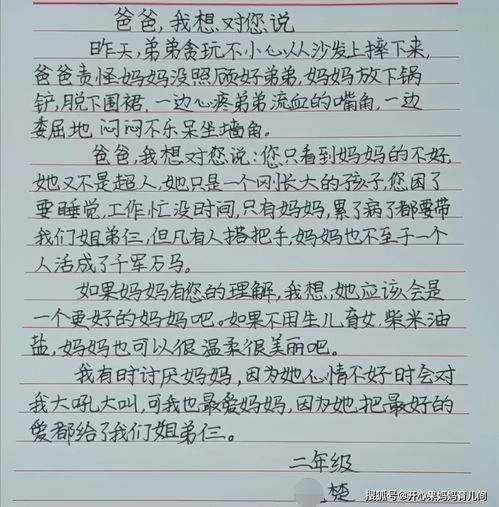 爸爸,我想对您说
昨天,弟弟贪玩不小心从沙发上摔下来,
爸爸责怪妈妈没照顾好弟弟,妈妈放下锅
铲,脱下围裙.一边心疼弟弟流血的嘴角,一边
委屈地 闷闷不乐呆坐墙角。
爸爸,我想对您说:您只看到妈妈的不好,
她又不是超人,她只是一个刚长大的孩子,您困了
要睡觉,工作忙没时间,只有妈妈,累了病了都要带
我们姐弟仨,但凡有人搭把手,妈妈也不至于一个
人活成了千军万马。
如果妈妈有您的理解,我想,她应该会是
一个更好的妈妈吧。如果不用生儿育女,柴米油
盐,妈妈也可以很温柔很美丽吧。
我有时讨厌妈妈,因为她心情不好时会对
我大吼大叫,可我也最爱妈妈,因为她,把最好的
爱都给了我们姐弟仨。
二年级
楚
搜狐号@开心果妈妈育儿间